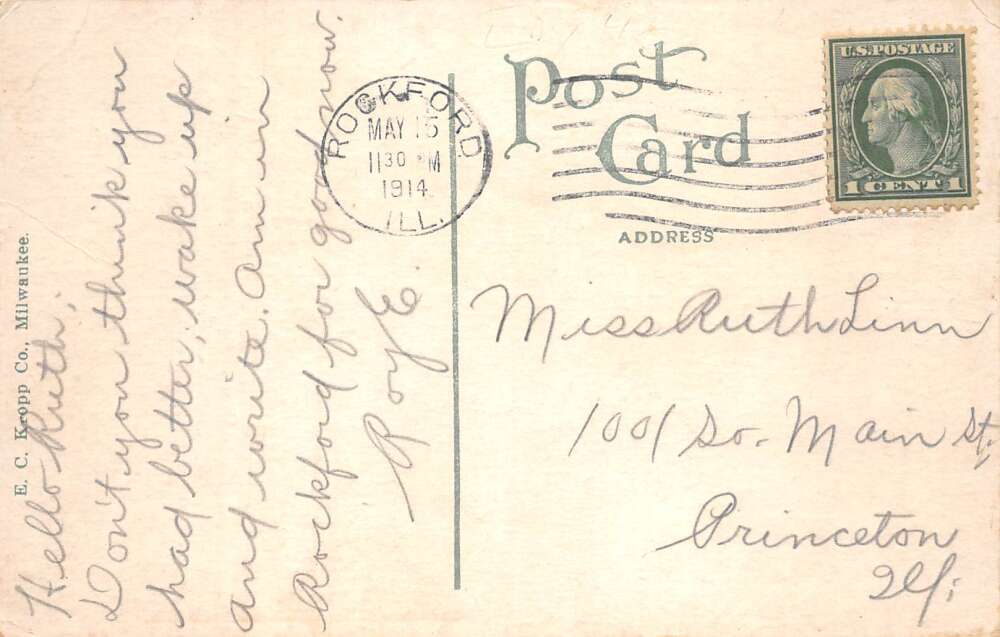 Hello Ruth,
Don't you think you
had better, wake up
and write. Am in
Rockford for good now.
Roy E.
E. C. Kropp Co., Milwaukee.
Post
Card
ADDRESS
ROCKFORD
MAY 15
1130 M
1914
ILL.
U.S. POSTAGE
1 CENT 1
Miss Ruth Linn
1001 So. Main St,
Princeton
Ill.